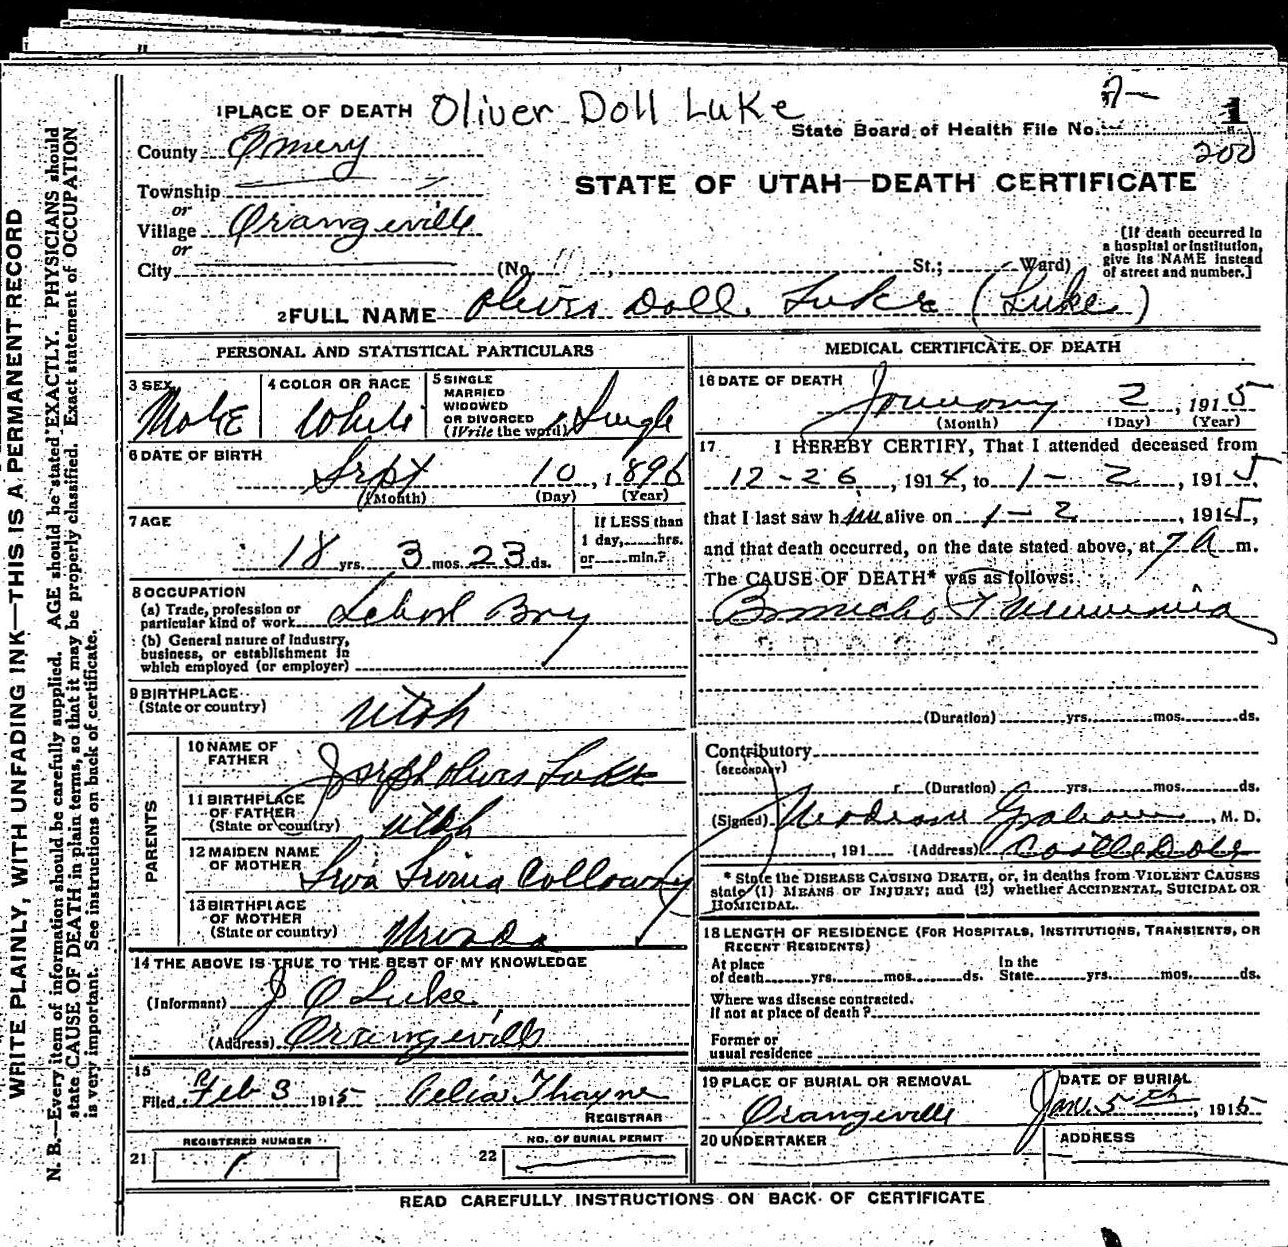 1 PLACE OF DEATH Oliver Doll Luke
State Board of Health File No. 1
200
County Emery
STATE OF UTAH—DEATH CERTIFICATE
Township
or
Village Orangeville
or
City (No. St.; Ward)
[If death occurred in
a hospital or institution,
give its NAME instead
of street and number.]
2 FULL NAME Oliver Doll Luke (Luke)
PERSONAL AND STATISTICAL PARTICULARS
3 SEX Male
4 COLOR OR RACE White
5 SINGLE
MARRIED
WIDOWED
OR DIVORCED
(Write the word) Single
6 DATE OF BIRTH
Sept 10, 1896
(Month) (Day) (Year)
7 AGE
18 yrs. 3 mos. 23 ds.
If LESS than
1 day, hrs.
or min.?
8 OCCUPATION
(a) Trade, profession or
particular kind of work School Boy
(b) General nature of Industry,
business, or establishment in
which employed (or employer)
9 BIRTHPLACE
(State or country) Utah
PARENTS
10 NAME OF
FATHER Joseph Oliver Luke
11 BIRTHPLACE
OF FATHER
(State or country) Utah
12 MAIDEN NAME
OF MOTHER Calloway
13 BIRTHPLACE
OF MOTHER
(State or country) Nevada
14 THE ABOVE IS TRUE TO THE BEST OF MY KNOWLEDGE
(Informant) J O Luke
(Address) Orangeville
15
Filed Feb 3 1915 Celia Thayne
REGISTRAR
REGISTERED NUMBER
21 1
NO. OF BURIAL PERMIT
22
MEDICAL CERTIFICATE OF DEATH
16 DATE OF DEATH
January 2, 1915
(Month) (Day) (Year)
17 I HEREBY CERTIFY, That I attended deceased from
12-26, 1914, to 1-2, 1915,
that I last saw him alive on 1-2, 1915,
and that death occurred, on the date stated above, at 7 A m.
The CAUSE OF DEATH* was as follows:
Broncho Pneumonia
(Duration) yrs. mos. ds.
Contributory
(SECONDARY)
(Duration) yrs. mos. ds.
(Signed) , M. D.
, 191 (Address) Castle Dale
* State the DISEASE CAUSING DEATH, or, in deaths from VIOLENT CAUSES
state (1) MEANS OF INJURY; and (2) whether ACCIDENTAL, SUICIDAL OR
HOMICIDAL.
18 LENGTH OF RESIDENCE (FOR HOSPITALS, INSTITUTIONS, TRANSIENTS, OR
RECENT RESIDENTS)
At place
of death yrs. mos. ds.
In the
State yrs. mos. ds.
Where was disease contracted.
If not at place of death?
Former or
usual residence
19 PLACE OF BURIAL OR REMOVAL
Orangeville
DATE OF BURIAL
Jan. 5th, 1915
20 UNDERTAKER
ADDRESS
READ CAREFULLY INSTRUCTIONS ON BACK OF CERTIFICATE
WRITE PLAINLY, WITH UNFADING INK—THIS IS A PERMANENT RECORD
N. B.—Every item of information should be carefully supplied. AGE should be stated EXACTLY. PHYSICIANS should
state CAUSE OF DEATH in plain terms, so that it may be properly classified. Exact statement of OCCUPATION
is very important. See instructions on back of certificate.